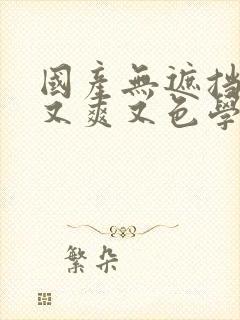 國產無遮挡
又爽又色學
繁朵